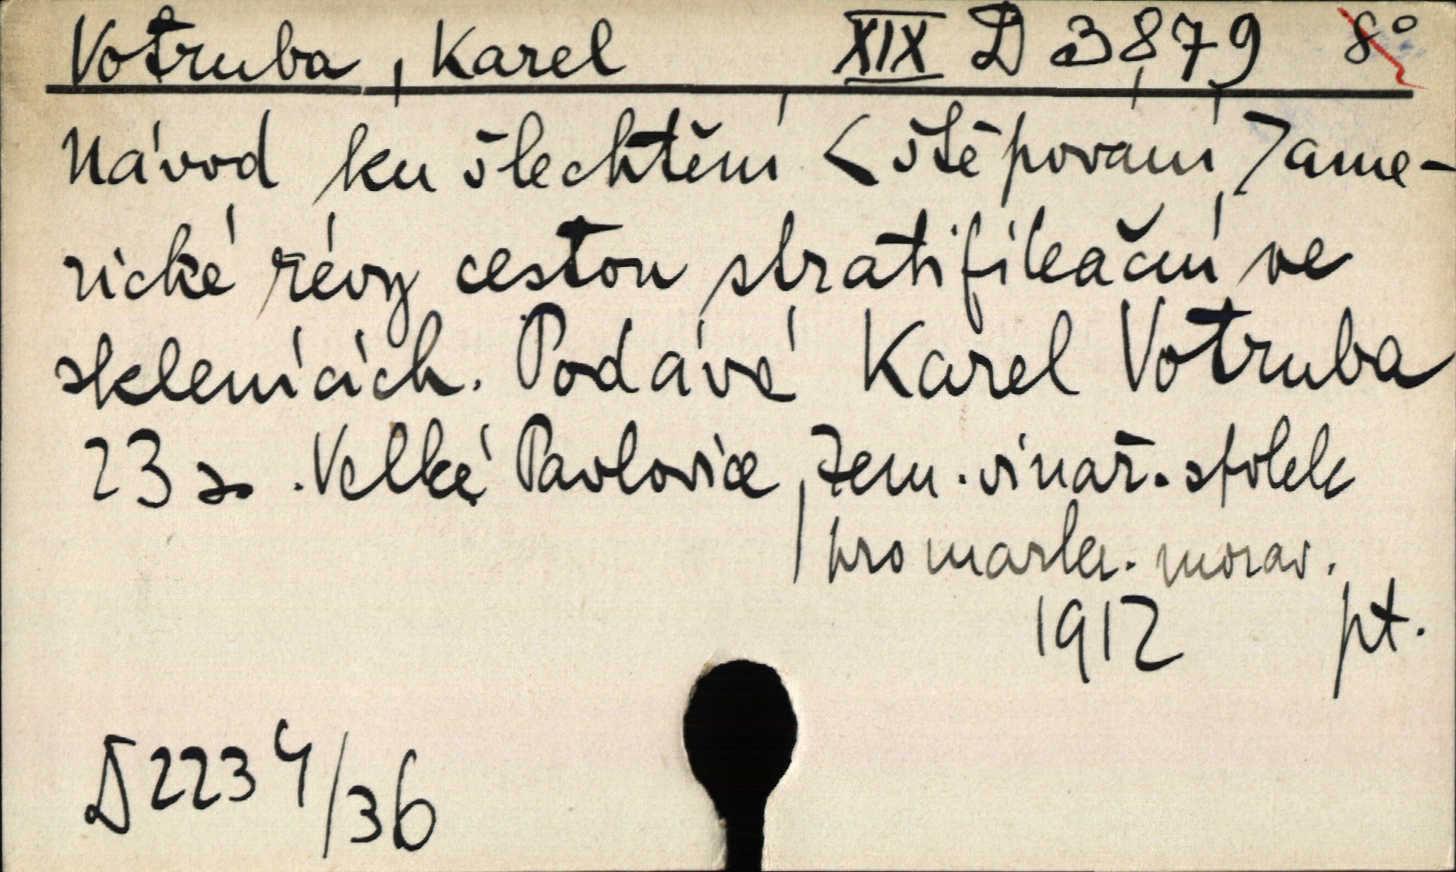 Votruba, Karel XIX D 3879 8°
Návod ku šlechtění <štěpování> ame-
rické révy cestou stratifikační ve
sklenících. Podává Karel Votruba
23 s. Velké Pavlovice, Zem. vinař. spolek
pro markr. morav.
1912 pt.
D 2234/36